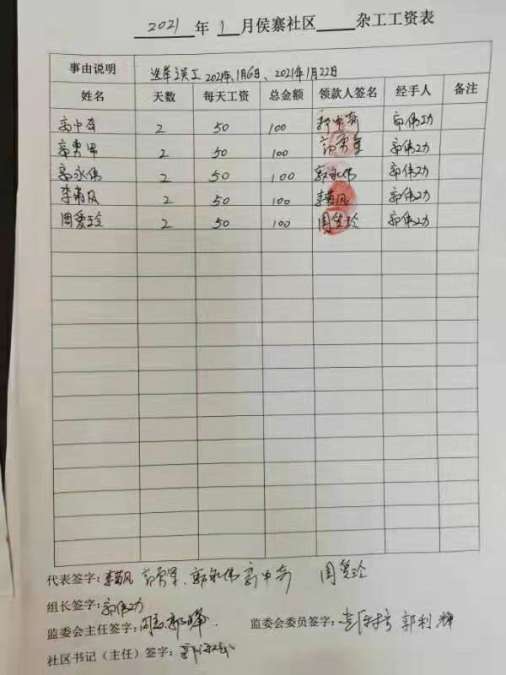 2021 年 1 月侯寨社区 杂工工资表
事由说明 选举误工 2021年1月6日、2021年1月22日
姓名 天数 每天工资 总金额 领款人签名 经手人 备注
郭中奇 2 50 100 郭中奇 郭伟功
郭秀军 2 50 100 郭秀军 郭伟功
郭永伟 2 50 100 郭永伟 郭伟功
李菊凤 2 50 100 李菊凤 郭伟功
周爱玲 2 50 100 周爱玲 郭伟功
代表签字:李菊凤 郭秀军、郭永伟 郭中奇 周爱玲
组长签字:郭伟功
监委会主任签字: 监委会委员签字: 郭利
社区书记(主任)签字: